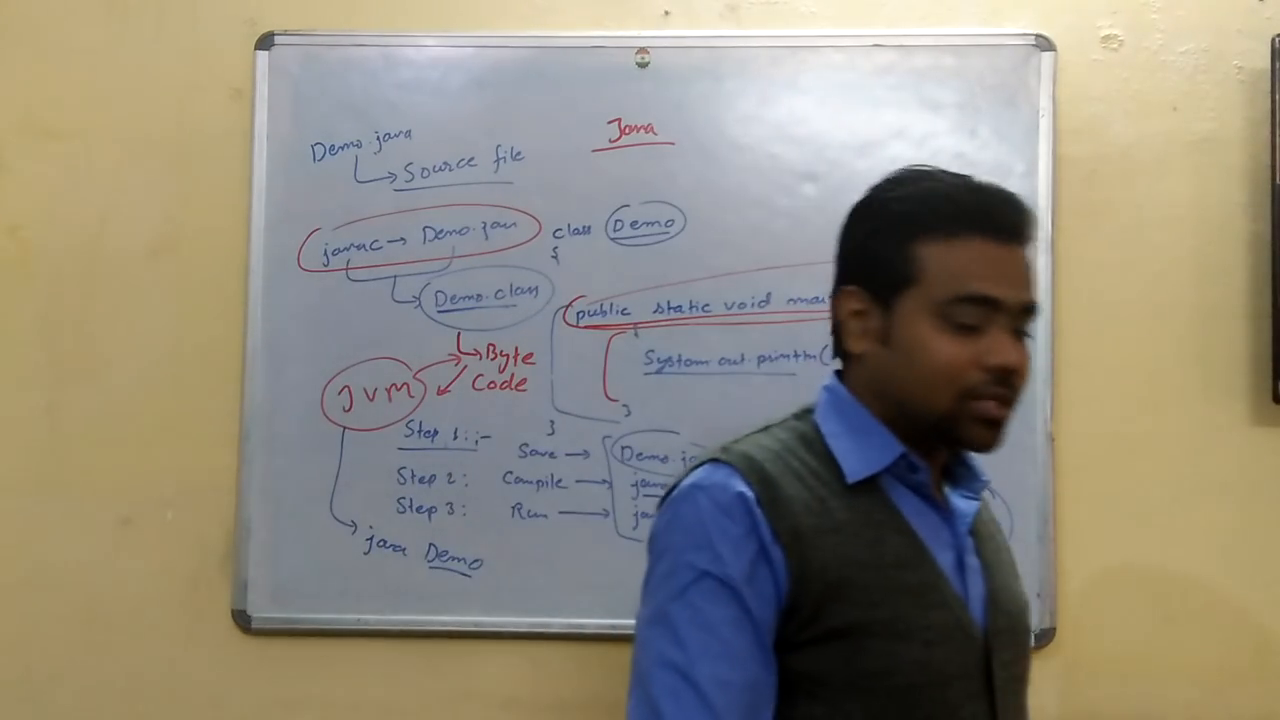 Java
Demo.java
Source file
javac → Demo.java
Demo.class
Byte
Code
JVM
java Demo
class Demo
{
public static void
{
System.out.println(
}
}
Step 1:-
Save →
Step 2: Compile →
Step 3: Run →